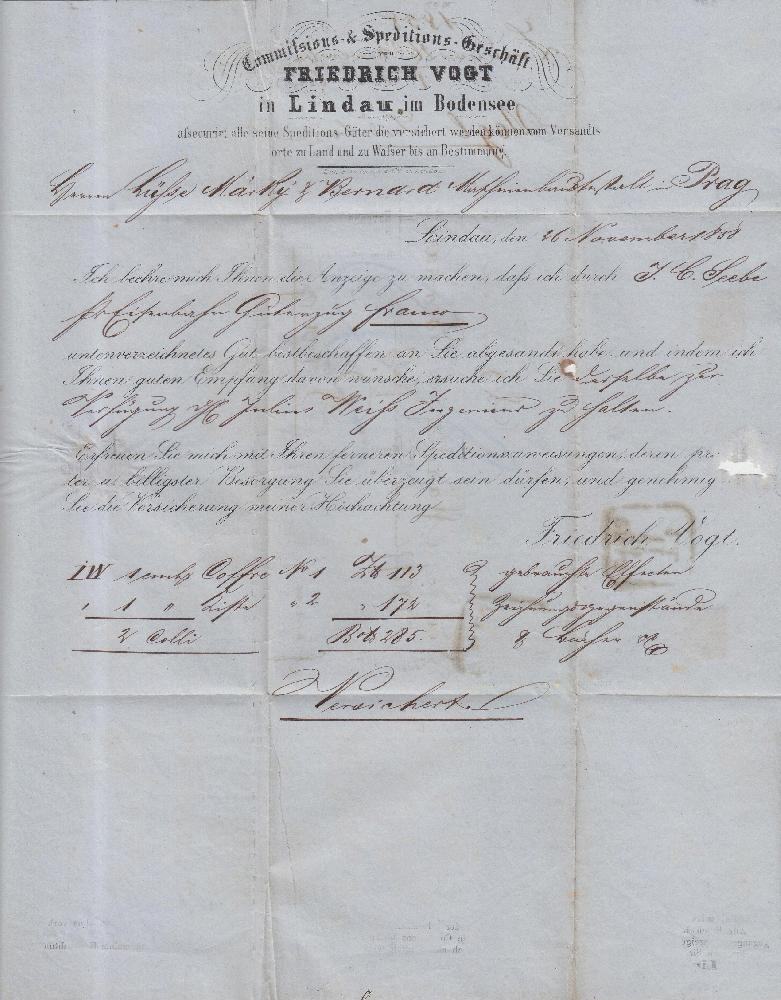 Commissions- & Speditions-Geschäft
von
FRIEDRICH VOGT
in Lindau im Bodensee
assecurirt alle seine Speditions-Güter die versichert werden können vom Versandts
orte zu Land und zu Wasser bis an Bestimmung.
Herren Märky & Bernard in Prag
Lindau, den 26 November 1858
Ich beehre mich Ihnen die Anzeige zu machen, daß ich durch J. C.
pr Eisenbahn Güterzug franco
unterverzeichnetes Gut bestbeschaffen an Sie abgesandt habe und indem ich
Ihnen guten Empfang davon wünsche, ersuche ich Sie derselbe zur
Verfügung Julius Weiss Ingenieur zu halten.
Erfreuen Sie mich mit Ihren ferneren Speditionszuweisungen, deren
billigster Besorgung Sie überzeugt sein dürfen, und genehmig
Sie die Versicherung meiner Hochachtung
Friedrich Vogt.
IW 1 Coffre No 1 113 gebrauchte Effecten
" 1 " Kiste " 2 " 172
2 Colli 285. & Bücher
Versichert.